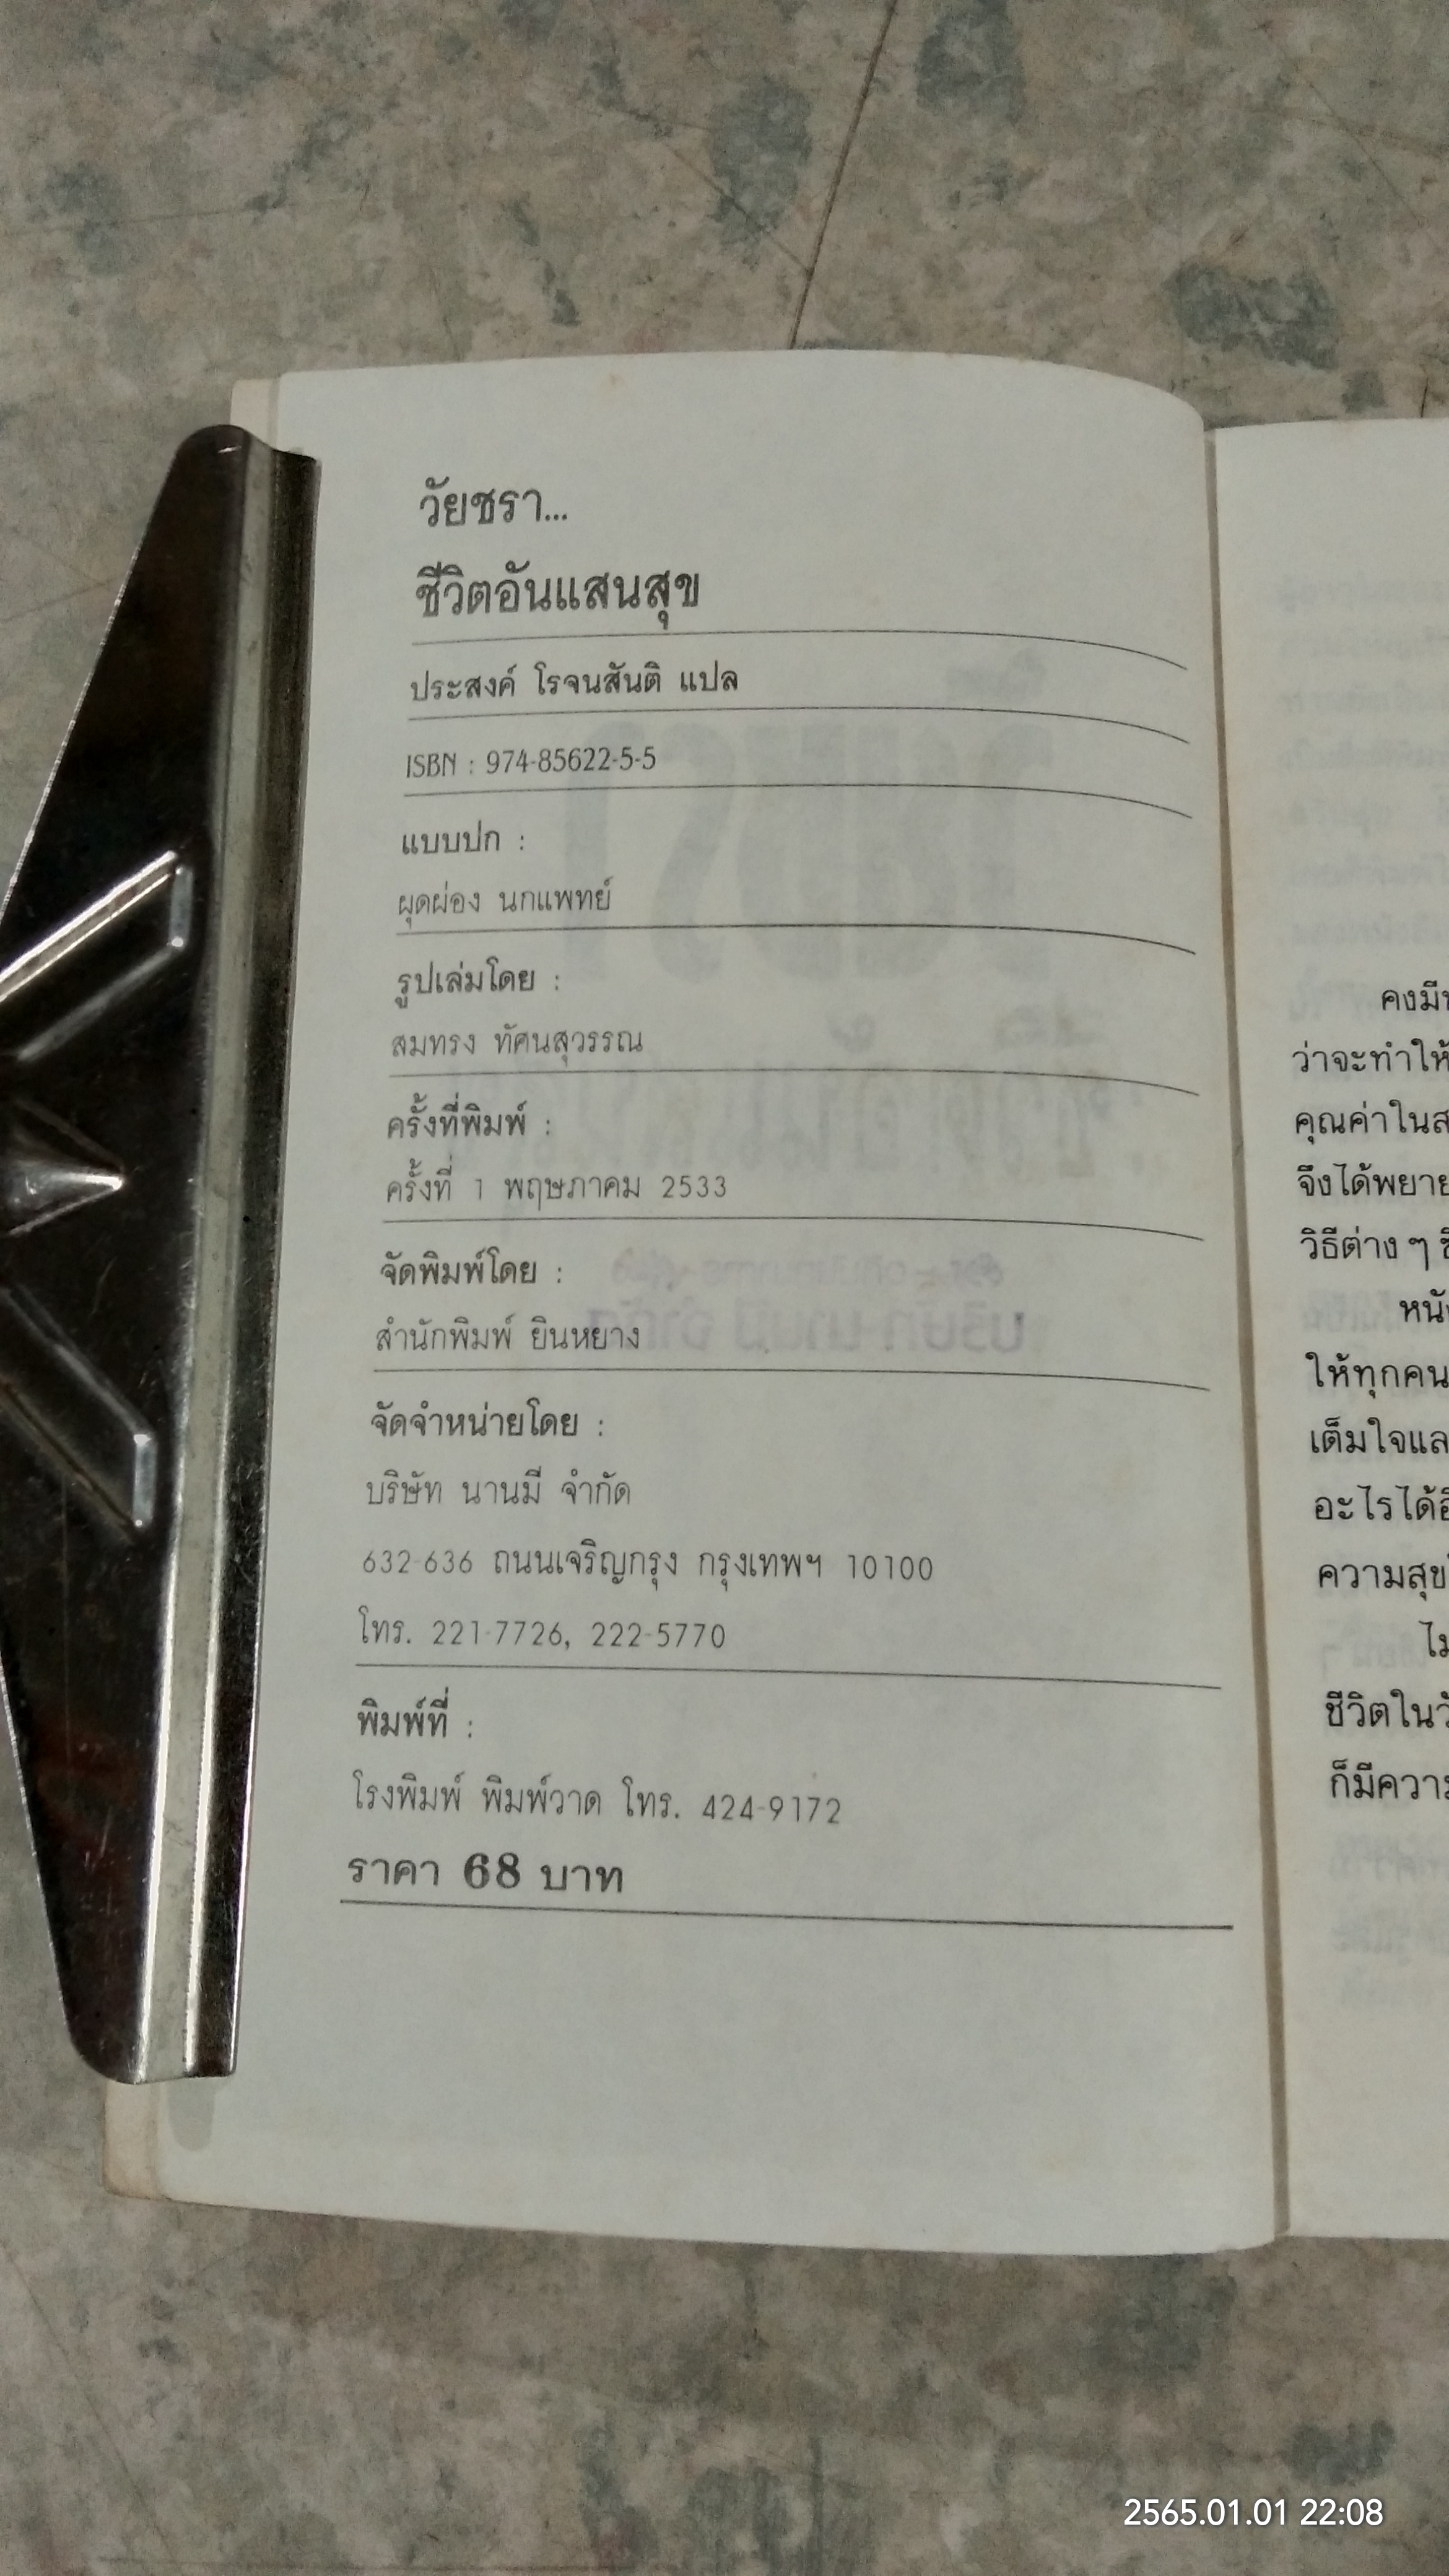 วัยชรา...
ชีวิตอันแสนสุข
ประสงค์ โรจนสันติ แปล
ISBN : 974-85622-5-5
แบบปก :
ผุดผ่อง นกแพทย์
รูปเล่มโดย :
สมทรง ทัศนสุวรรณ
ครั้งที่พิมพ์ :
ครั้งที่ 1 พฤษภาคม 2533
จัดพิมพ์โดย :
สำนักพิมพ์ ยินหยาง
จัดจำหน่ายโดย :
บริษัท นานมี จำกัด
632-636 ถนนเจริญกรุง กรุงเทพฯ 10100
โทร. 221-7726, 222-5770
พิมพ์ที่ :
โรงพิมพ์ พิมพ์วาด โทร. 424-9172
ราคา 68 บาท
คงมี
ว่าจะทำให้
คุณค่าใน
จึงได้
วิธีต่าง ๆ
ให้ทุกคน
เต็มใจ
อะไรได้
ความสุข
ชีวิตใน
ก็มี
2565.01.01 22:08